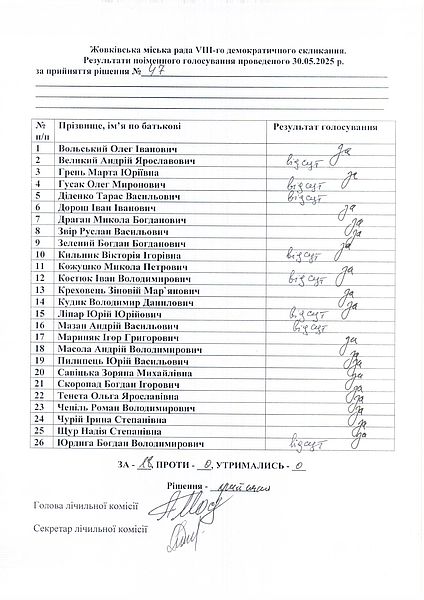 Жовківська міська рада VIII-го демократичного скликання.
Результати поіменного голосування проведеного 30.05.2025 р.
за прийняття рішення № 47
№ п/п Прізвище, ім'я по батькові Результат голосування
1 Вольський Олег Іванович за
2 Великий Андрій Ярославович відсут
3 Грень Марта Юріївна за
4 Гусак Олег Миронович відсут
5 Діденко Тарас Васильович відсут
6 Дорош Іван Іванович за
7 Драган Микола Богданович за
8 Звір Руслан Васильович за
9 Зелений Богдан Богданович за
10 Кильник Вікторія Ігорівна відсут
11 Кожушко Микола Петрович за
12 Костюк Іван Володимирович відсут
13 Креховець Зіновій Мар`янович за
14 Кудик Володимир Данилович за
15 Ліпар Юрій Юрійович відсут
16 Мазан Андрій Васильович відсут
17 Мариняк Ігор Григорович за
18 Масола Андрій Володимирович за
19 Пилипець Юрій Васильович за
20 Сапіцька Зоряна Михайлівна за
21 Скоропад Богдан Ігорович за
22 Тенета Ольга Ярославівна за
23 Чепіль Роман Володимирович за
24 Чурій Ірина Степанівна за
25 Щур Надія Степанівна за
26 Юрдига Богдан Володимирович відсут
ЗА - 18, ПРОТИ - 0, УТРИМАЛИСЬ - 0
Рішення - прийнято
Голова лічильної комісії
Секретар лічильної комісії